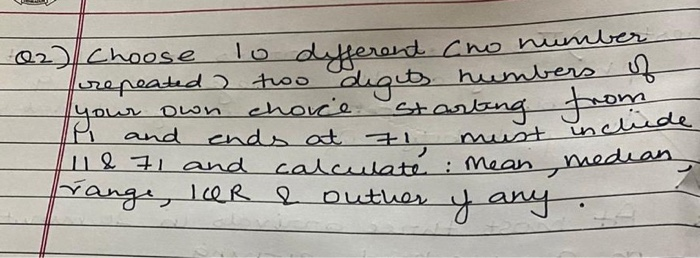 Q2) Choose 10 different (no number
repeated) two digits numbers of
your own choice starting from
11 and ends at 71, must include
11 & 71 and calculate: Mean, median,
range, IQR & outlier if any.